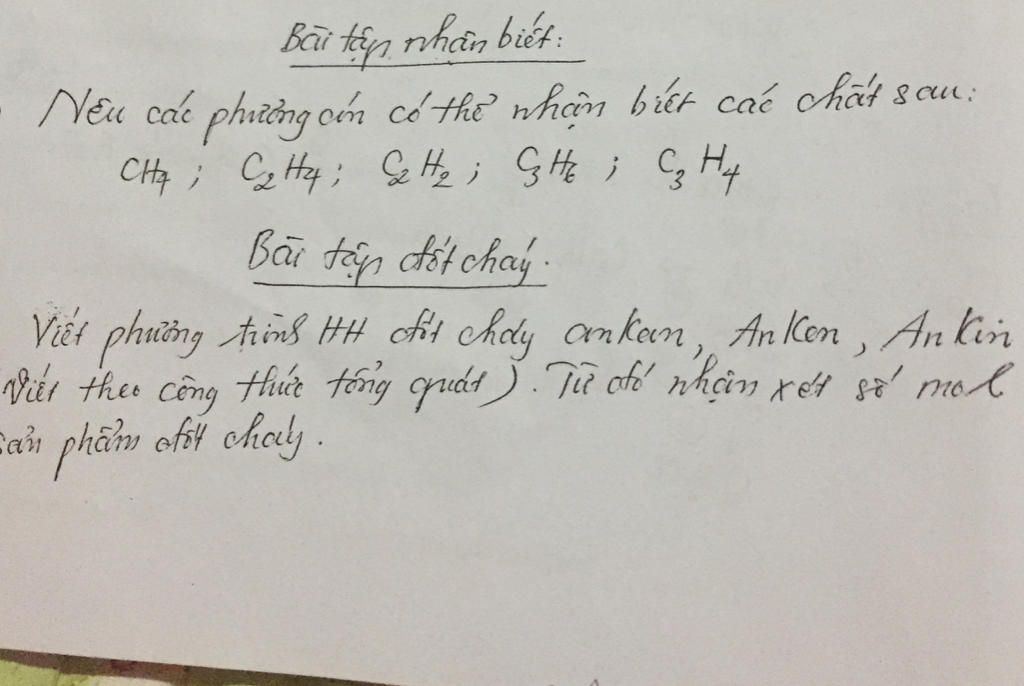 Bài tập nhận biết:
Nêu các phương án có thể nhận biết các chất sau:
CH4 ; C2H4 ; C2H2 ; C3H6 ; C3H4
Bài tập đốt cháy.
Viết phương trình HH đốt cháy ankan, Anken, Ankin
(Viết theo công thức tổng quát). Từ đó nhận xét số mol
sản phẩm đốt cháy.